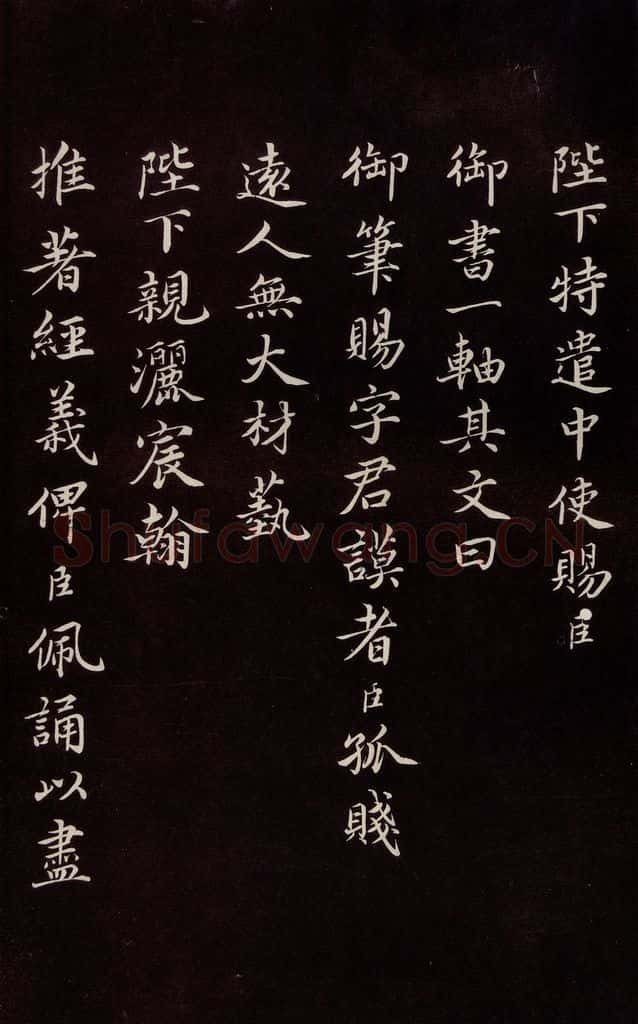 陛下特遣中使賜臣
御書一軸其文曰
御筆賜字君謨者臣孤賤
遠人無大材藝
陛下親灑宸翰
推著經義俾臣佩誦以盡
Shufawang.CN